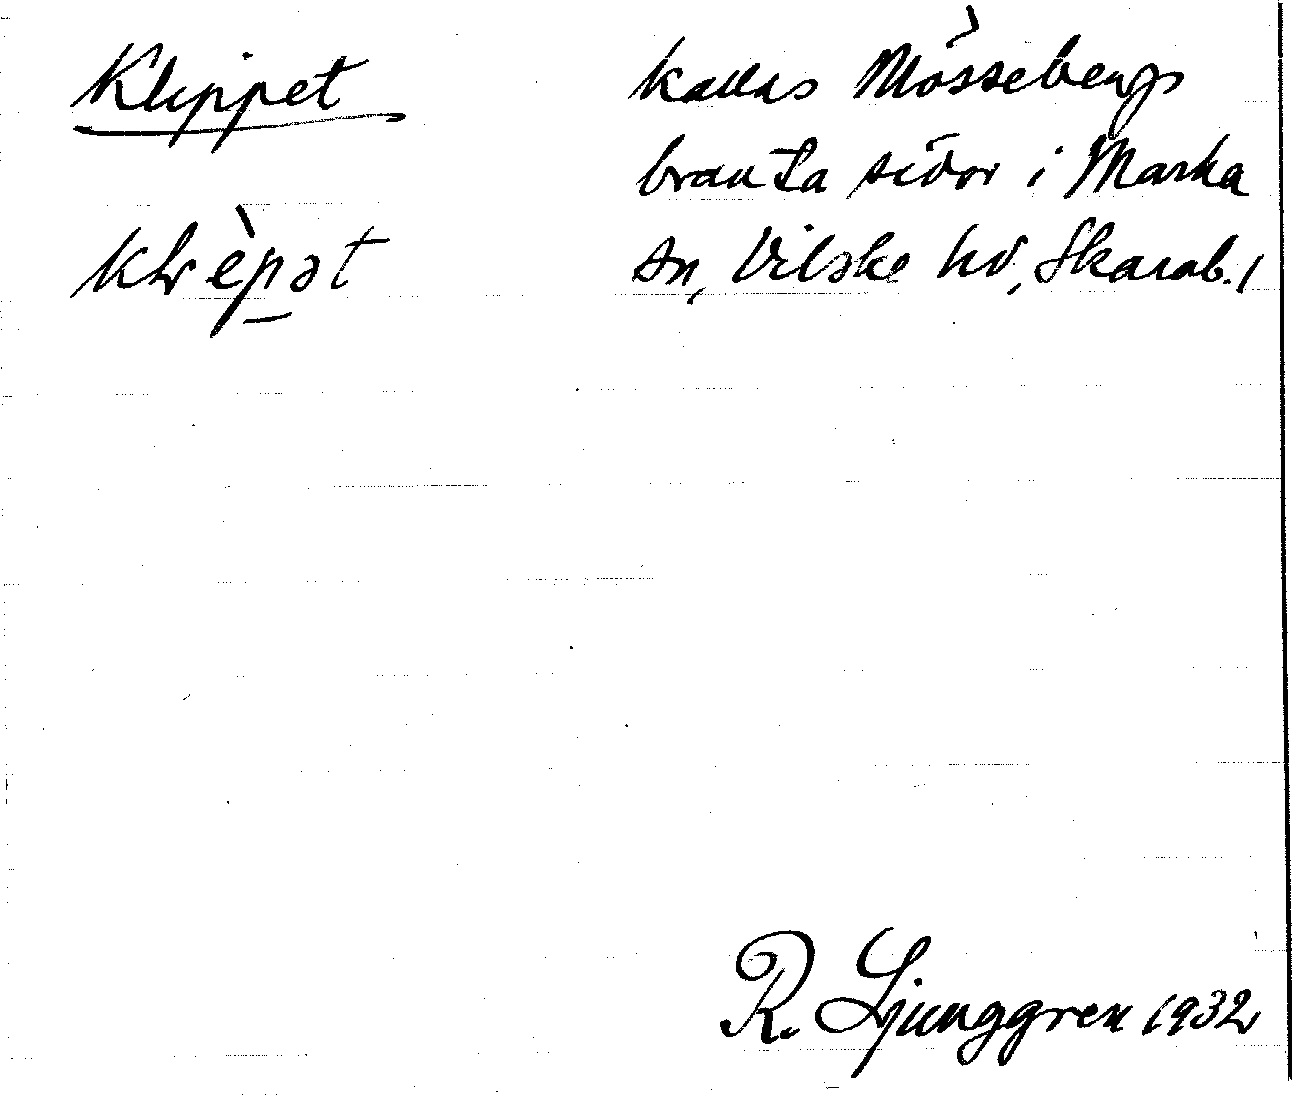 Klippet
kallas Mössebergs
branta sidor i Marka
sn, Vilske hd, Skarab. l
R. Ljunggren 1932